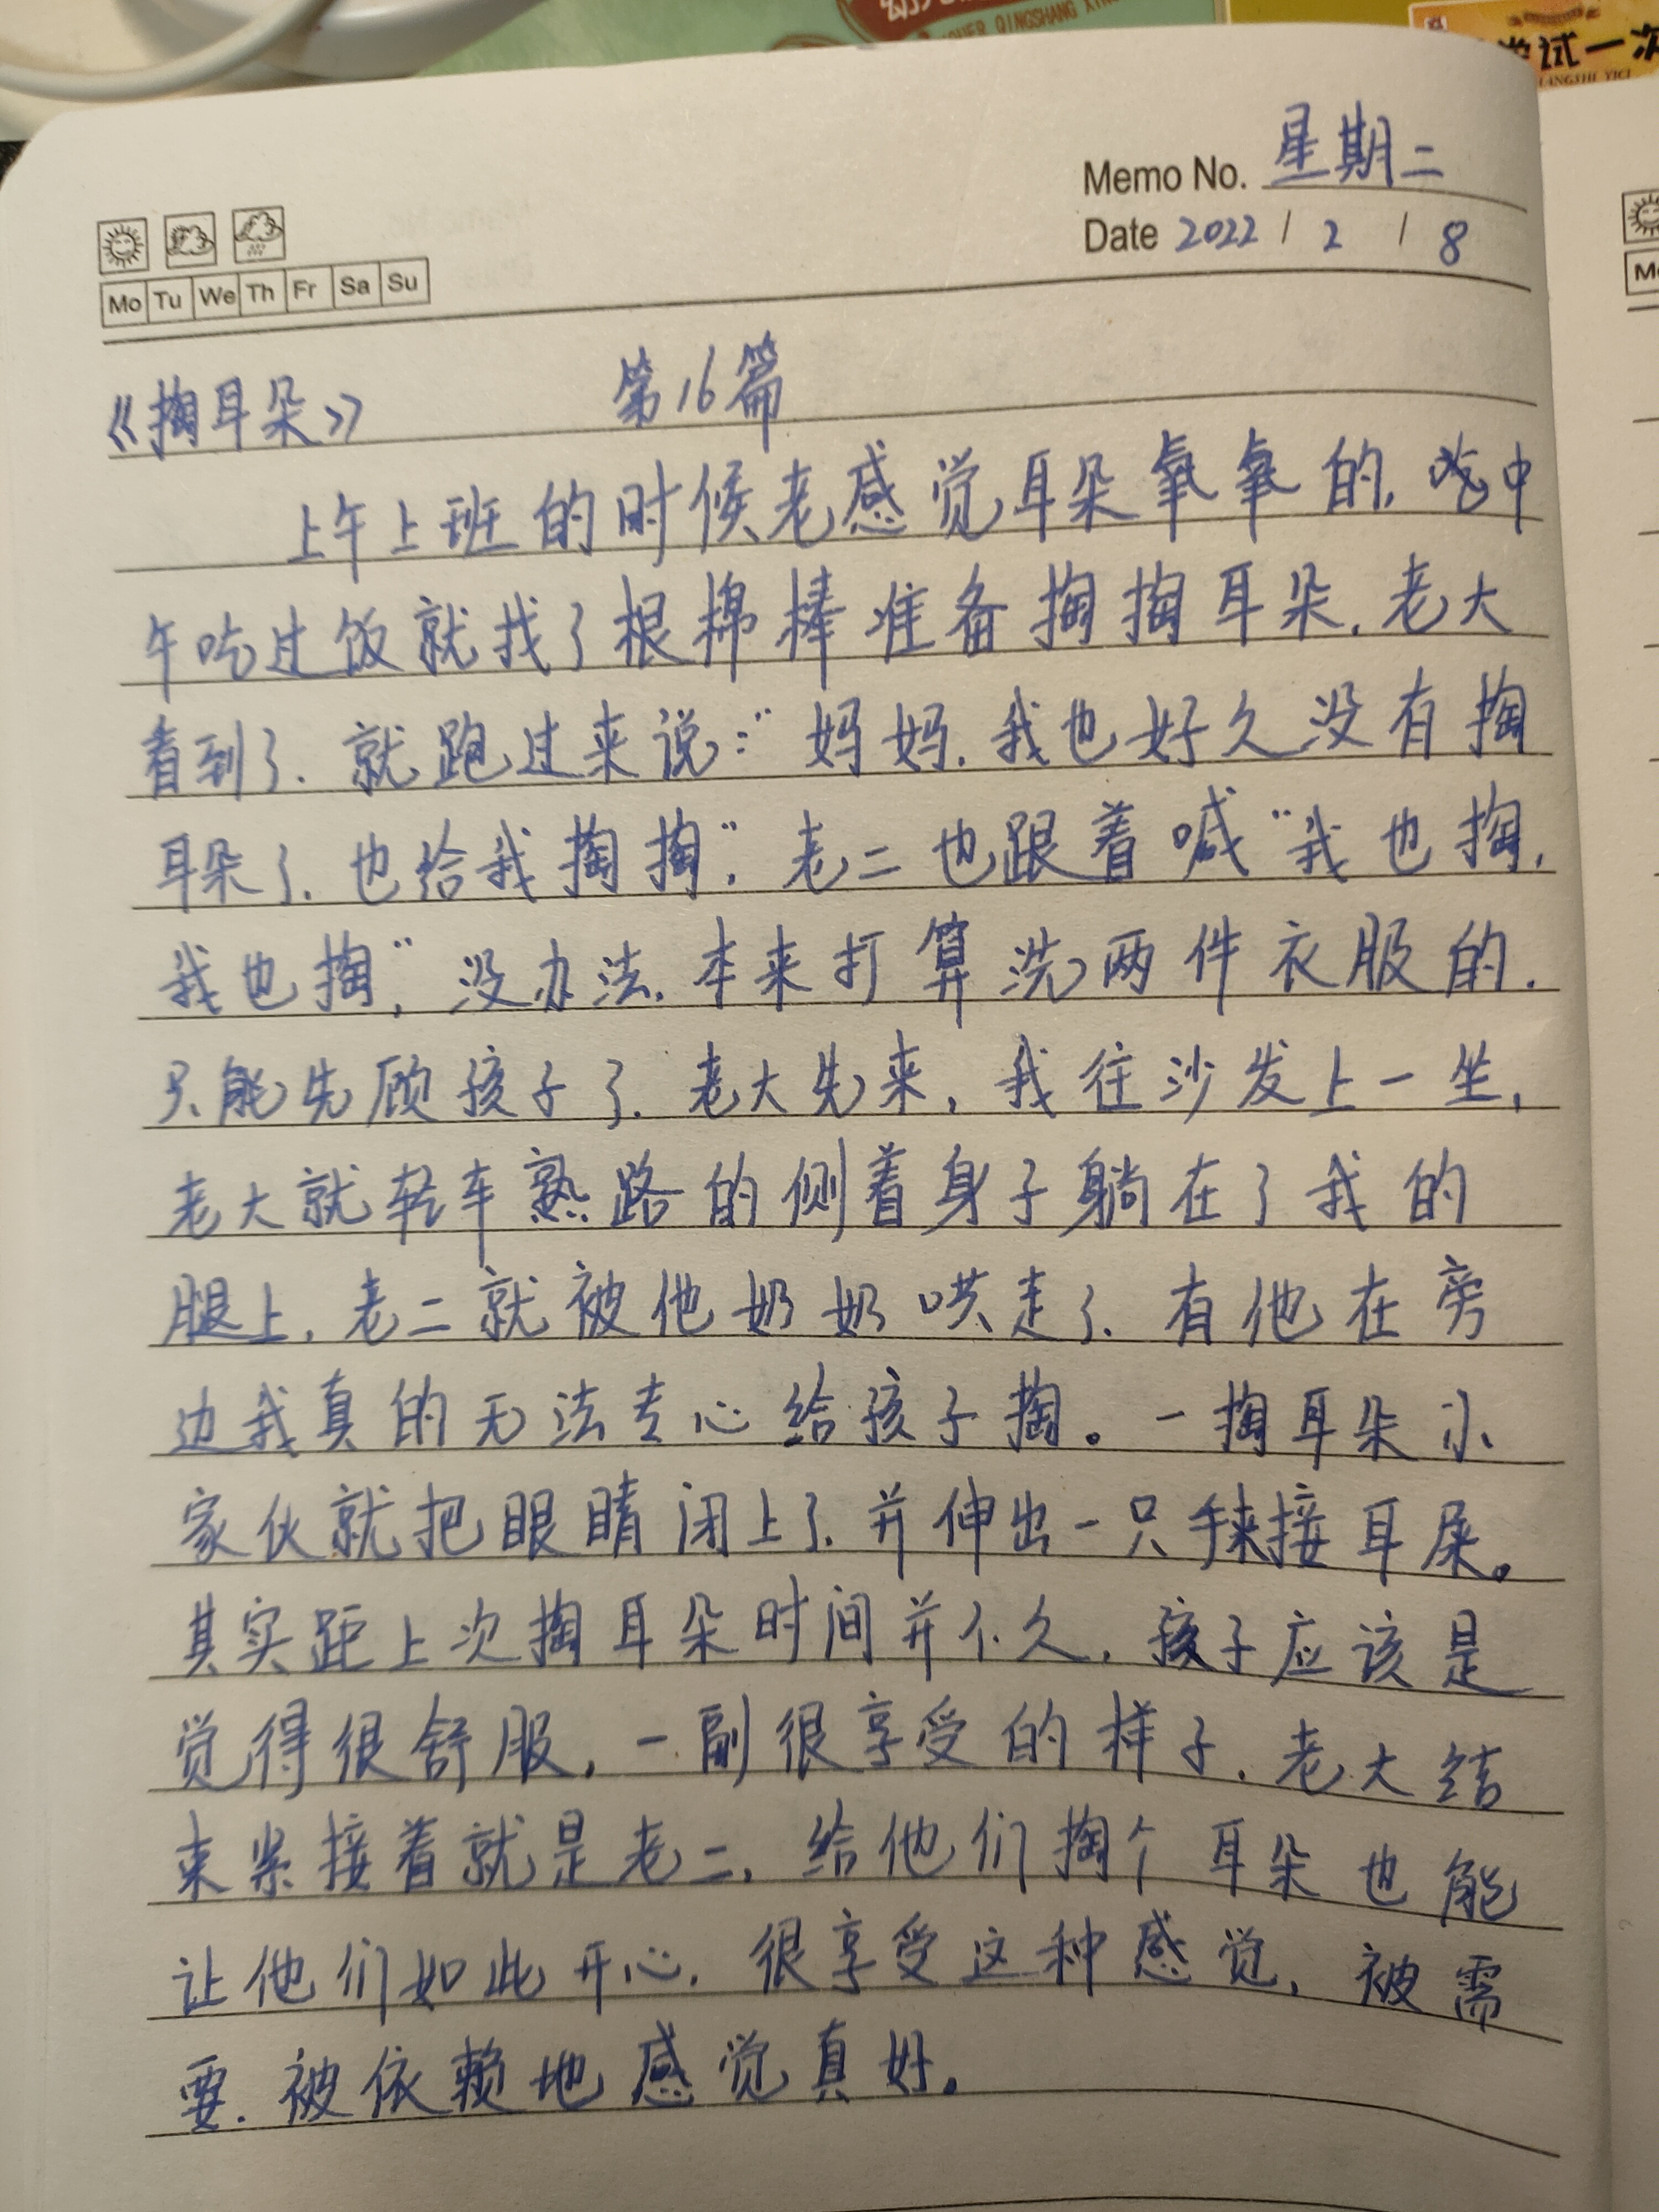 QINGSHANG XING
尝试一次
LANGSHI YICI
Memo No. 星期二
Date 2022 / 2 / 8
Mo Tu We Th Fr Sa Su
《掏耳朵》 第16篇
上午上班的时候老感觉耳朵氧氧的，吃中
午吃过饭就找了根棉棒准备掏掏耳朵，老大
看到了，就跑过来说："妈妈，我也好久没有掏
耳朵了，也给我掏掏"，老二也跟着喊"我也掏，
我也掏"，没办法，本来打算洗两件衣服的，
只能先顾孩子了，老大先来，我往沙发上一坐，
老大就轻车熟路的侧着身子躺在了我的
腿上，老二就被他奶奶哄走了，有他在旁
边我真的无法专心给孩子掏。一掏耳朵小
家伙就把眼睛闭上了，并伸出一只手来接耳屎。
其实距上次掏耳朵时间并不久，孩子应该是
觉得很舒服，一副很享受的样子，老大结
束紧接着就是老二，给他们掏个耳朵也能
让他们如此开心，很享受这种感觉，被需
要，被依赖地感觉真好。